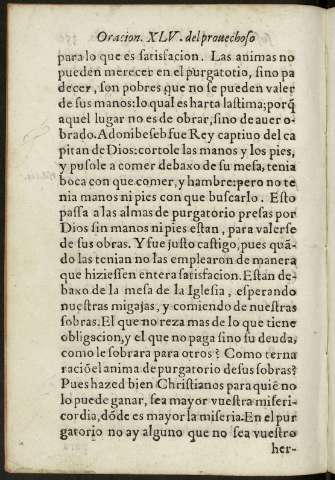 Oracion. XLV. del prouechoso
para lo que es satisfacion. Las animas no
pueden merecer en el purgatorio, sino pa
decer, son pobres que no se pueden valer
de sus manos: lo qual es harta lastima; porq̃
aquel lugar no es de obrar, sino de auer o-
brado. Adonibeseb fue Rey captiuo del ca
pitan de Dios: cortole las manos y los pies,
y pusole a comer debaxo de su mesa, tenia
boca con que comer, y hambre: pero no te
nia manos ni pies con que buscarlo. Esto
passa a las almas de purgatorio presas por
Dios sin manos ni pies estan, para valerse
de sus obras. Y fue justo castigo, pues quã-
do las tenian no las emplearon de manera
que hiziessen entera satisfacion. Estan de-
baxo de la mesa de la Iglesia, esperando
nuestras migajas, y comiendo de nuestras
sobras. El que no reza mas de lo que tiene
obligacion, y el que no paga sino su deuda,
como le sobrara para otros? Como terna
raciõ el anima de purgatorio de sus sobras?
Pues hazed bien Christianos para quiẽ no
lo puede ganar, sea mayor vuestra miseri-
cordia, dõde es mayor la miseria. En el pur
gatorio no ay alguno que no sea vuestro
her-